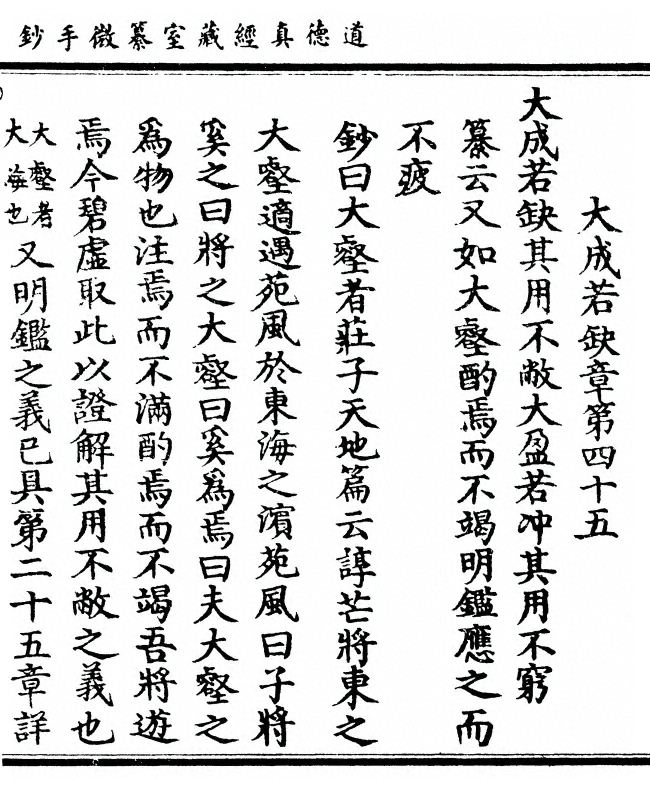 道德真經藏室纂微手鈔
大成若缺章第四十五
大成若缺其用不敝大盈若冲其用不窮
纂云又如大壑酌焉而不竭明鑑應之而
不疲
鈔曰大壑者莊子天地篇云諄芒將東之
大壑適遇苑風於東海之濱苑風曰子將
奚之曰將之大壑曰奚爲焉曰夫大壑之
爲物也注焉而不滿酌焉而不竭吾將遊
焉今碧虛取此以證解其用不敝之義也
大壑者大海也又明鑑之義已具第二十五章詳